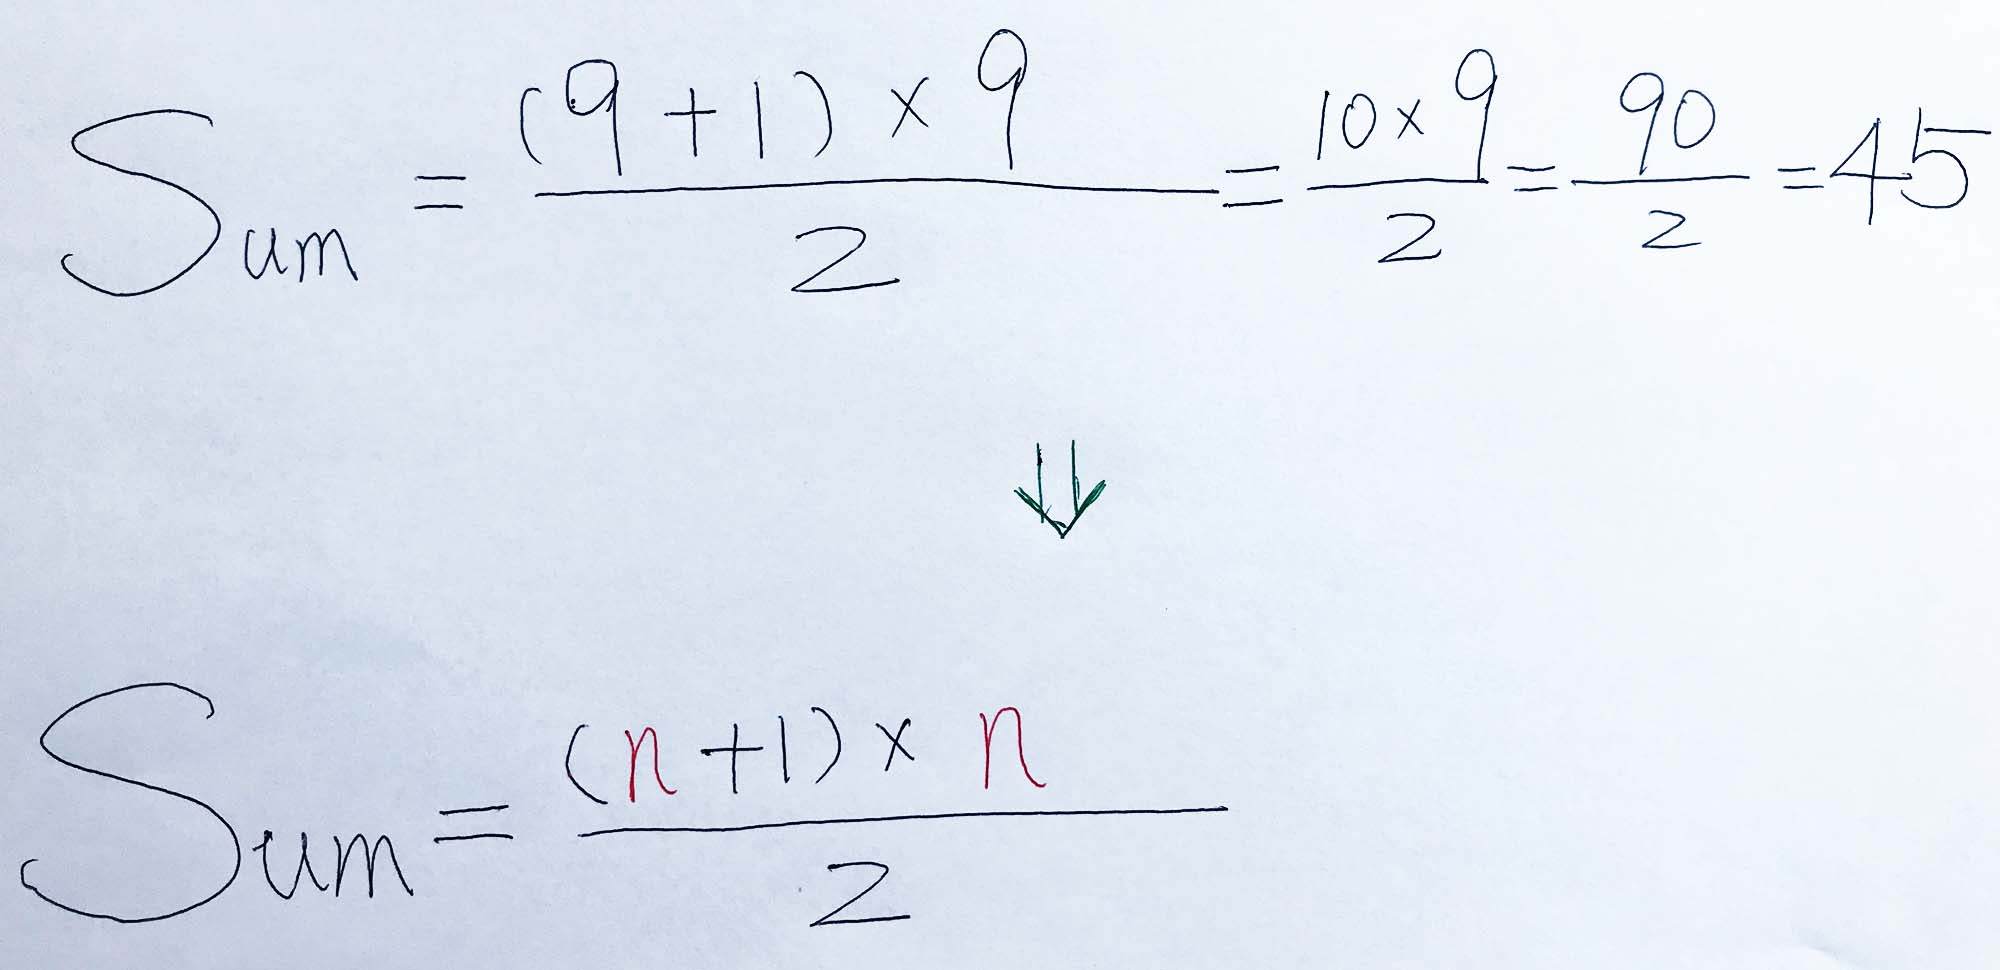 Sum = (9+1) × 9 / 2 = 10 × 9 / 2 = 90 / 2 = 45
⇓
Sum = (n+1) × n / 2